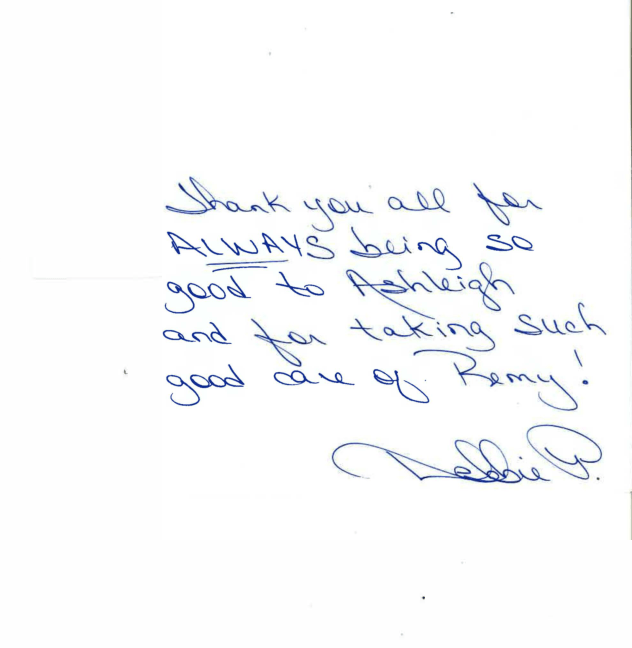 Thank you all for
ALWAYS being so
good to Ashleigh
and for taking such
good care of Remy!
Debbie P.